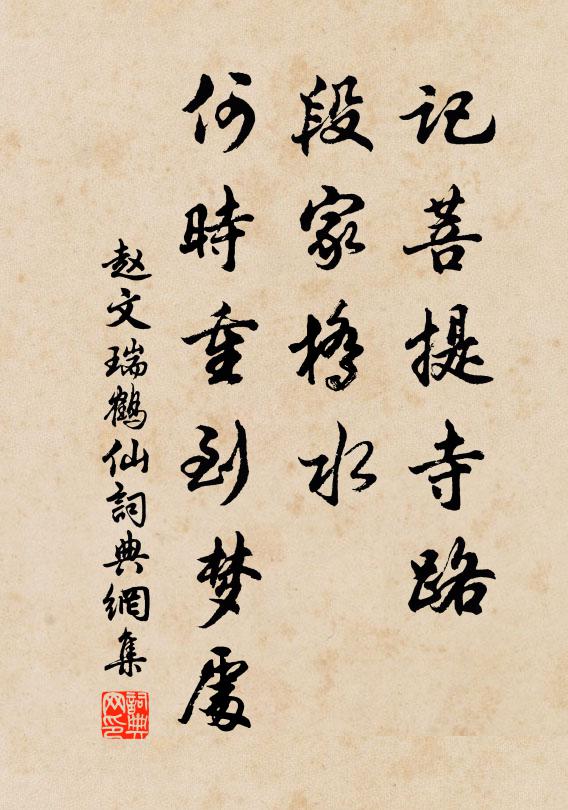 记菩提寺路
段家桥水
何時重到梦處
赵文瑞鶴仙詞典網集
詞典网印